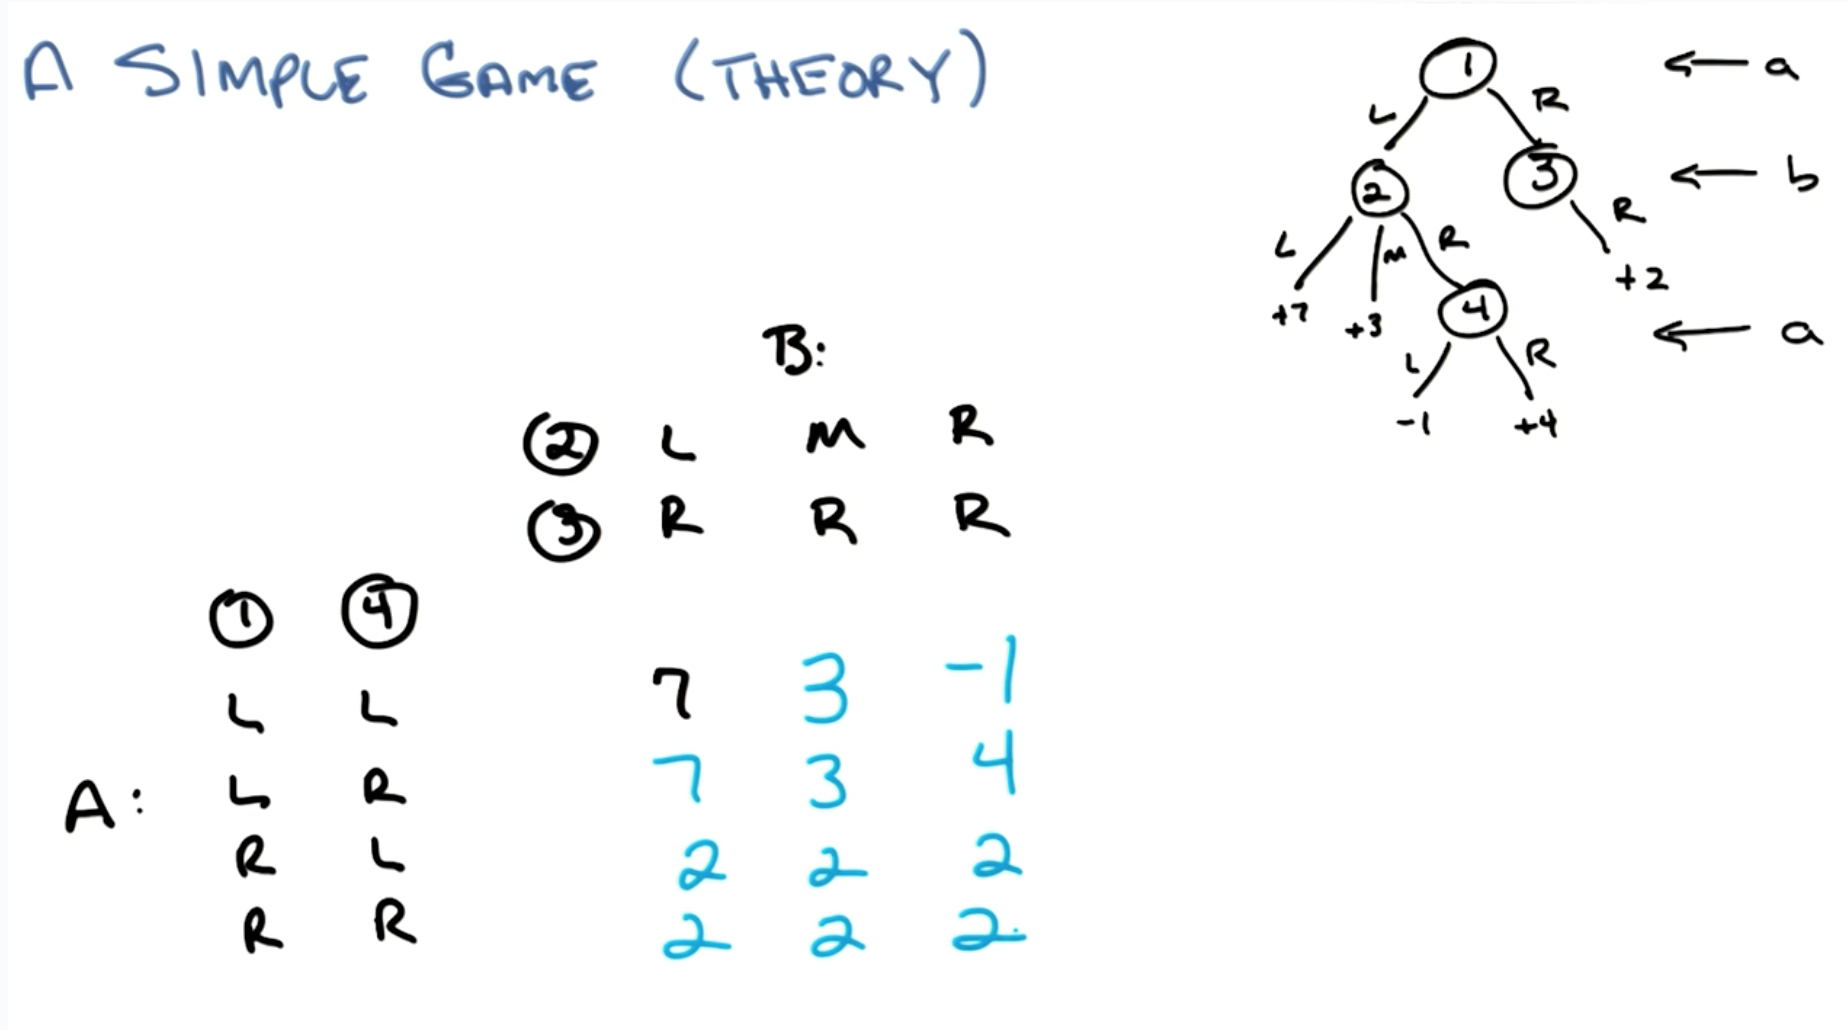 A SIMPLE GAME (THEORY)
1 ← a
L R
2 3 ← b
L M R R
+7 +3 4 +2
← a
L R
-1 +4
B:
2 L M R
3 R R R
1 4
L L 7 3 -1
A: L R 7 3 4
R L 2 2 2
R R 2 2 2